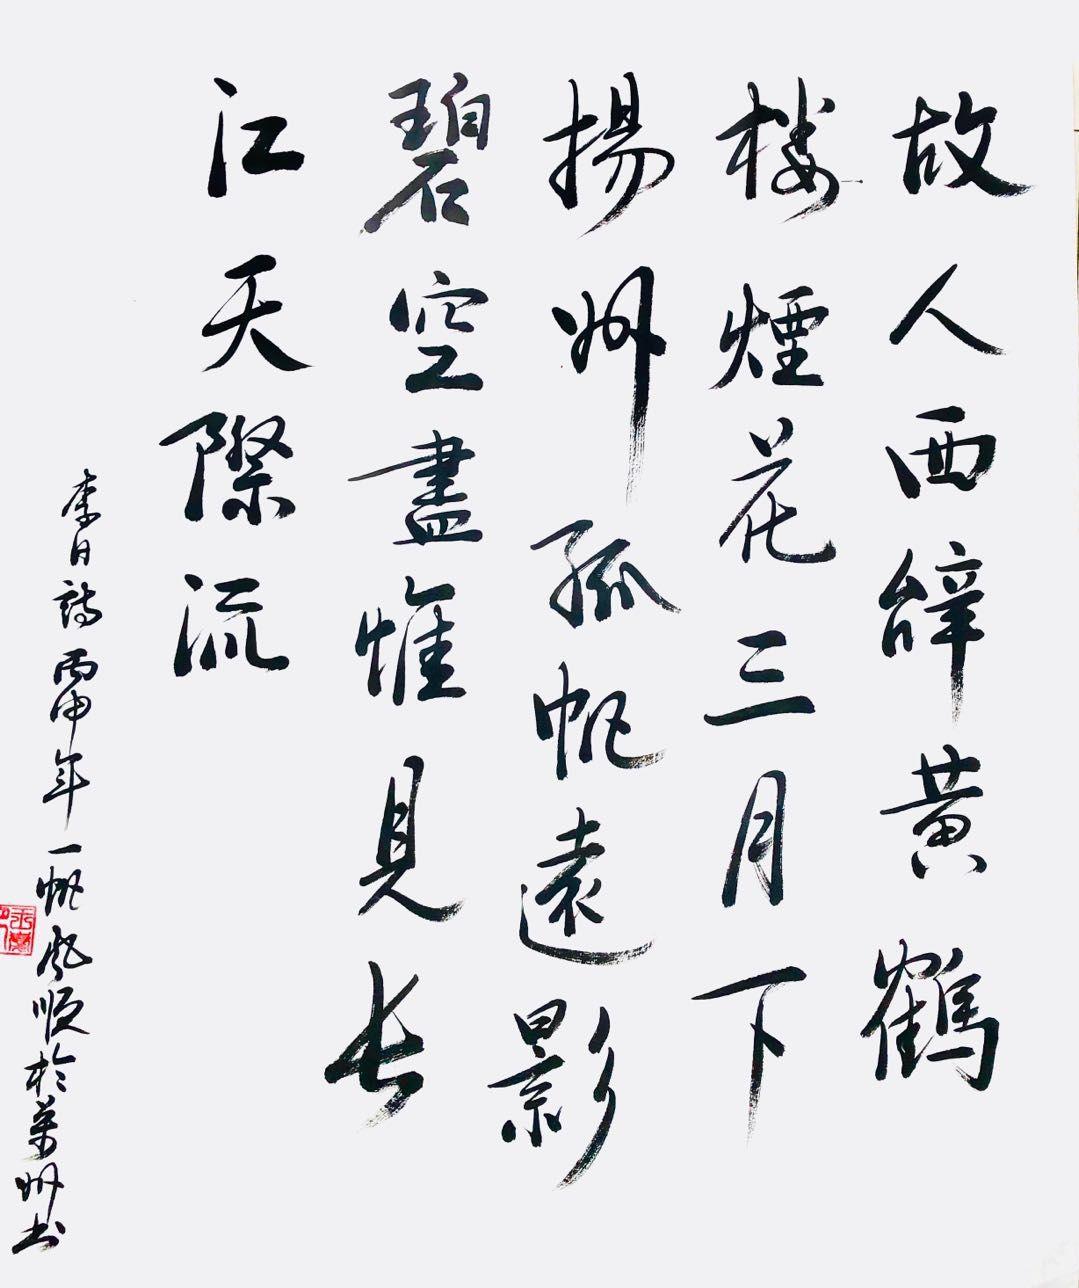 故人西辞黄鹤
楼煙花三月下
揚州孤帆遠影
碧空盡惟見长
江天際流
李白詩 丙申年 一帆风顺於萬州书